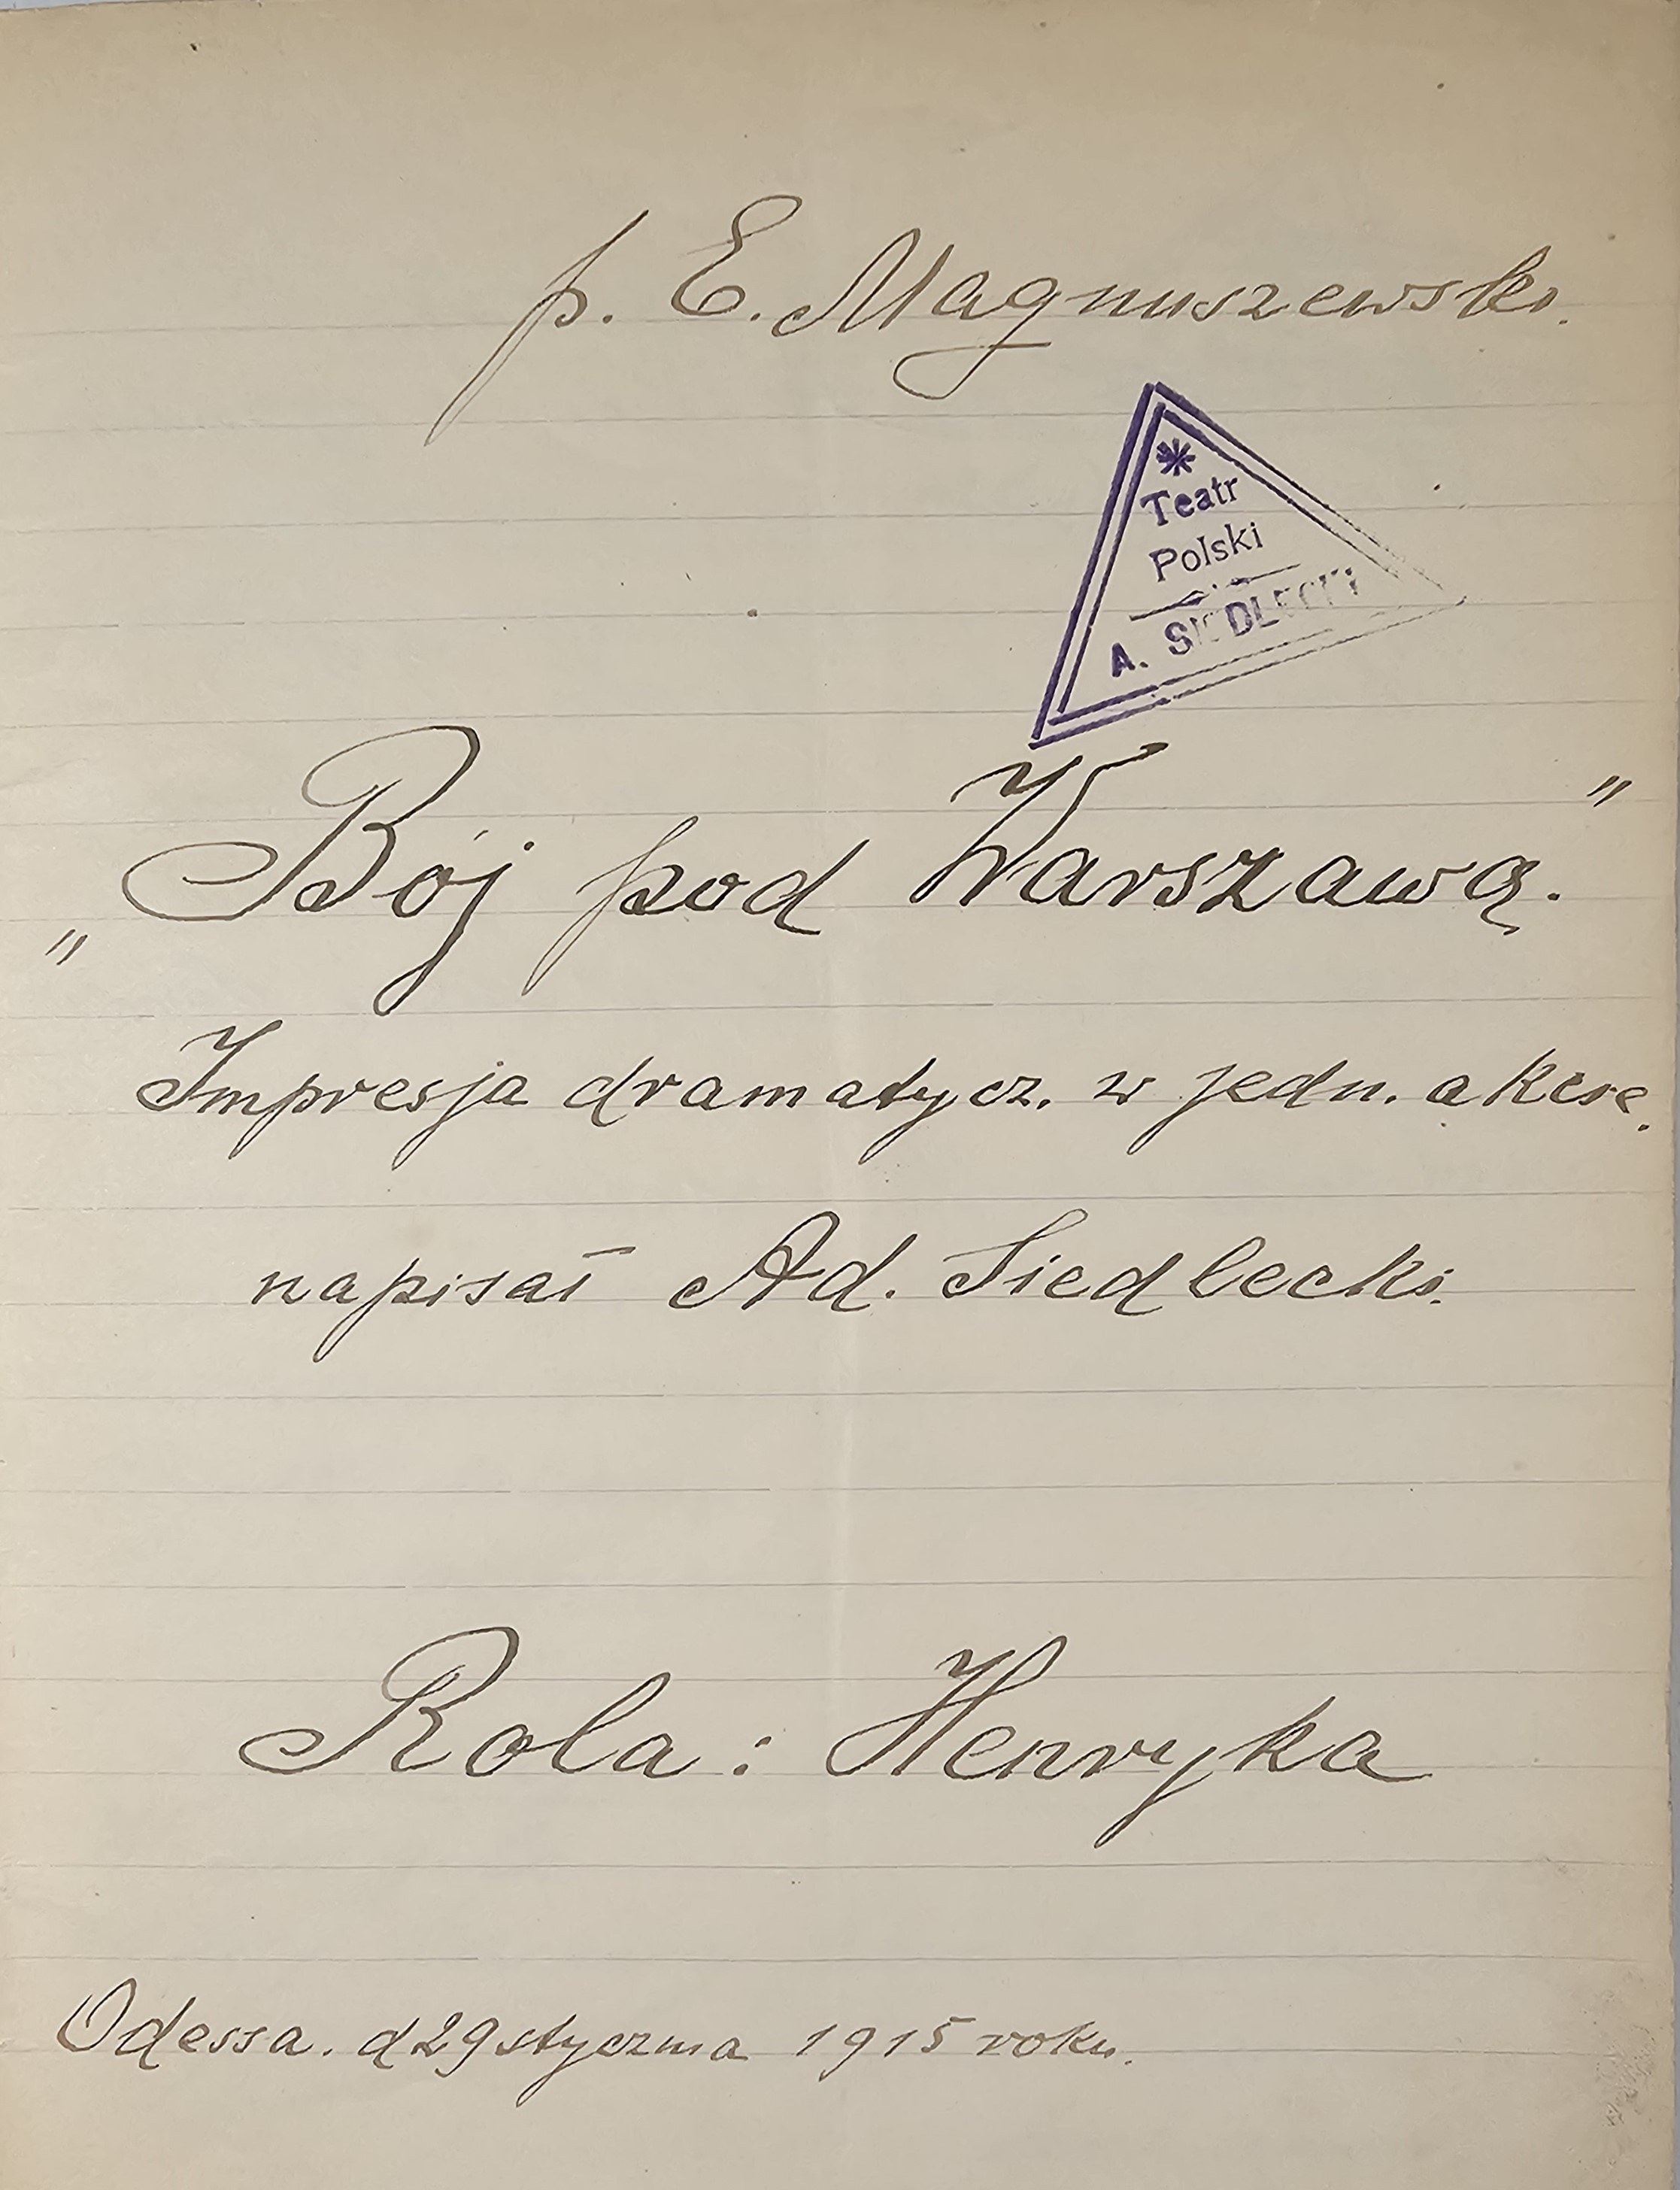 p. E. Magnuszewski.
Teatr
Polski
A. SIEDLECKI
„Bój pod Warszawą.”
Impresja dramatycz. w jedn. akcie.
napisał Ad. Siedlecki.
Rola: Henryka
Odessa. d 29 stycznia 1915 roku.